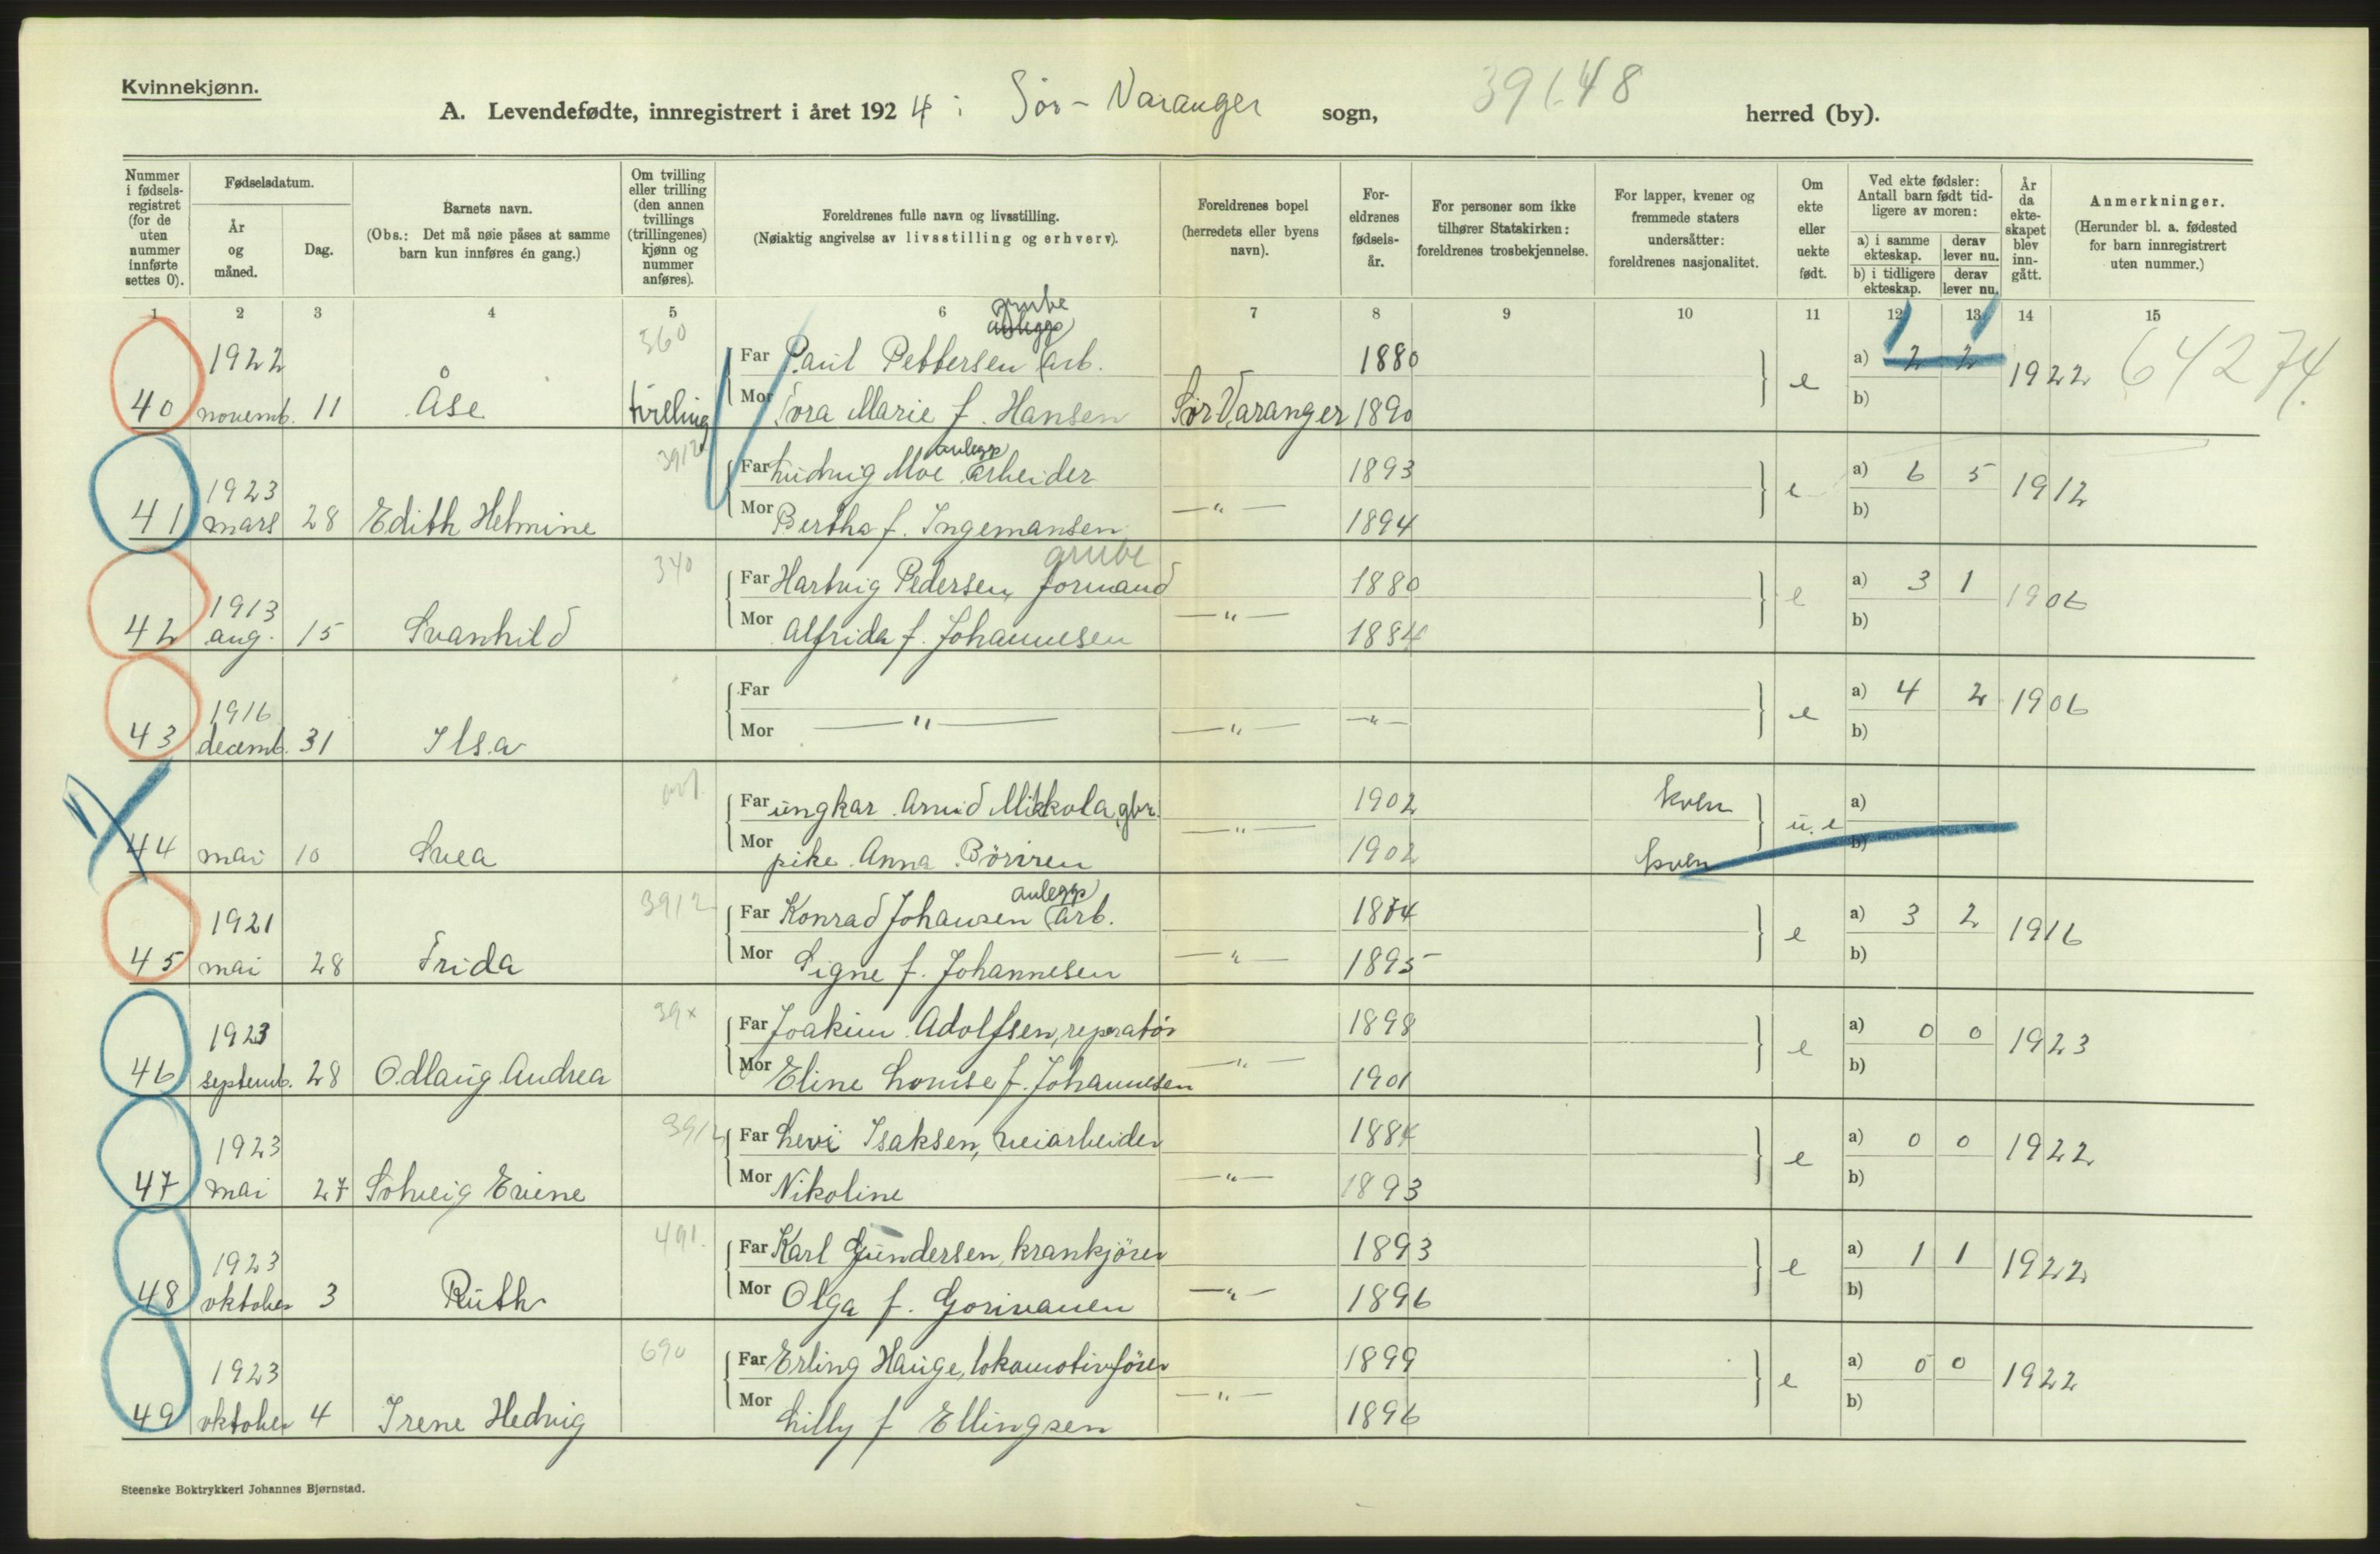 Kvinnekjønn.
A. Levendefødte, innregistrert i året 1924 i Sør-Varanger sogn, 39148 herred (by).
Nummer i fødsels-registret (for de uten nummer innførte settes 0).
Fødselsdatum.
År og måned.
Dag.
Barnets navn.
(Obs.: Det må nøie påses at samme barn kun innføres én gang.)
Om tvilling eller trilling (den annen tvillings (trillingenes) kjønn og nummer anføres).
Foreldrenes fulle navn og livsstilling.
(Nøiaktig angivelse av livsstilling og erhverv).
Foreldrenes bopel (herredets eller byens navn).
For-eldrenes fødsels-år.
For personer som ikke tilhører Statskirken: foreldrenes trosbekjennelse.
For lapper, kvener og fremmede staters undersåtter: foreldrenes nasjonalitet.
Om ekte eller uekte født.
Ved ekte fødsler: Antall barn født tid-ligere av moren:
a) i samme ekteskap. derav lever nu.
b) i tidligere ekteskap. derav lever nu.
År da ekte-skapet blev inn-gått.
Anmerkninger.
(Herunder bl. a. fødested for barn innregistrert uten nummer.)
1 2 3 4 5 6 7 8 9 10 11 12 13 14 15
grube
anleggs
1922 360 Far Paul Pettersen arb. 1880 a) 2 2 1 1 64274
40 novemb. 11 Åse tvilling Mor Tora Marie f. Hansen Sør Varanger 1890 e b) 1922
anleggs
1923 3912 Far Ludvig Moe arbeider 1893 a) 6 5
41 mars 28 Edith Helmine Mor Bertha f. Ingemansen -"- 1894 e b) 1912
grube
1913 340 Far Hartvig Pedersen, formand 1880 a) 3 1
42 aug. 15 Svanhild Mor Alfrida f. Johannesen -"- 1884 e b) 1906
1916 Far a) 4 2
43 decemb. 31 Ilsa Mor -"- -"- -"- e b) 1906
Far ungkar Arvid Mikkola, gbr. 1902 kven a)
44 mai 10 Svea Mor pike Anna -"- 1902 kven u.e b)
anleggs
1921 3912 Far Konrad Johansen arb. 1874 a) 3 2
45 mai 28 Frida Mor Signe f. Johannesen -"- 1895 e b) 1916
1923 39x Far Joakim Adolfsen, reperatør 1898 a) 0 0
46 septemb. 28 Odlaug Andrea Mor Eline Louise f. Johannesen -"- 1901 e b) 1923
1923 3912 Far Levi Isaksen, veiarbeider 1884 a) 0 0
47 mai 27 Solveig Evine Mor Nikoline -"- 1893 e b) 1922
1923 491. Far Karl Gundersen, krankjörer 1893 a) 1 1
48 oktober 3 Ruth Mor Olga f. Gorivanen -"- 1896 e b) 1922
1923 690 Far Erling Hauge, lokomotivförer 1899 a) 0 0
49 oktober 4 Irene Hedvig Mor Lilly f Ellingsen -"- 1896 e b) 1922
Steenske Boktrykkeri Johannes Bjørnstad.